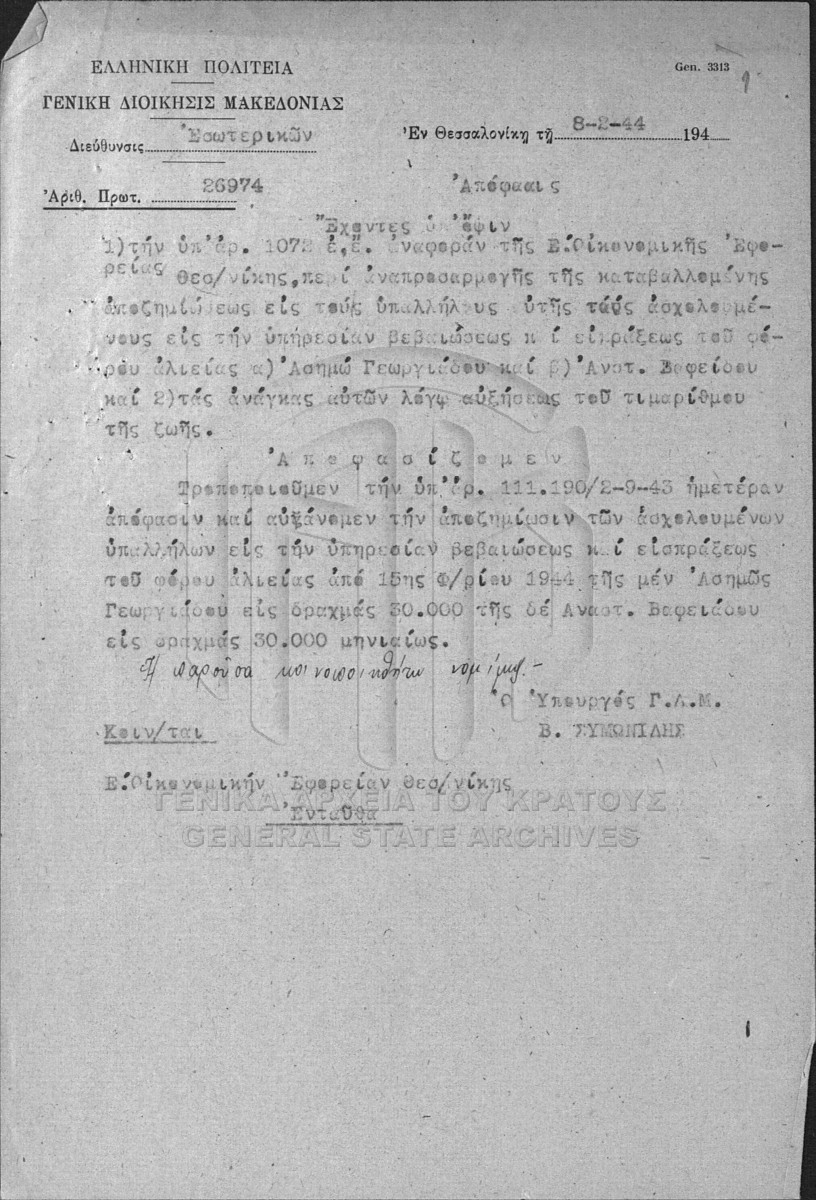 ΕΛΛΗΝΙΚΗ ΠΟΛΙΤΕΙΑ
Gen. 3313
ΓΕΝΙΚΗ ΔΙΟΙΚΗΣΙΣ ΜΑΚΕΔΟΝΙΑΣ
Διεύθυνσις Ἐσωτερικῶν
Ἐν Θεσσαλονίκῃ τῇ 8-2-44 194
Ἀριθ. Πρωτ. 26974
Ἀπόφασις
Ἔχοντες ὑπ'ὄψιν
1)τήν ὑπ'ἀρ. 1072 ἐ.ἔ. ἀναφοράν τῆς Ε.Οἰκονομικῆς Ἐφο-
ρείας Θεσ/νίκης,περί ἀναπροσαρμογῆς τῆς καταβαλλομένης
ἀποζημιώσεως εἰς τούς ὑπαλλήλους αὐτῆς τούς ἀσχολουμέ-
νους εἰς τήν ὑπηρεσίαν βεβαιώσεως καί εἰσπράξεως τοῦ φό-
ρου ἁλιείας α)Ἀσημώ Γεωργιάδου καί β)Ἀναστ. Βαφείδου
καί 2)τάς ἀνάγκας αὐτῶν λόγῳ αὐξήσεως τοῦ τιμαρίθμου
τῆς ζωῆς.
Ἀ π ο φ α σ ί ζ ο μ ε ν
Τροποποιοῦμεν τήν ὑπ'ἀρ. 111.190/2-9-43 ἡμετέραν
ἀπόφασιν καί αὐξάνομεν τήν ἀποζημίωσιν τῶν ἀσχολουμένων
ὑπαλλήλων εἰς τήν ὑπηρεσίαν βεβαιώσεως καί εἰσπράξεως
τοῦ φόρου ἁλιείας ἀπό 15ης Φ/ρίου 1944 τῆς μέν Ἀσημῶς
Γεωργιάδου εἰς δραχμάς 30.000 τῆς δέ Αναστ. Βαφειάδου
εἰς δραχμάς 30.000 μηνιαίως.
Ἡ παροῦσα κοινοποιηθήτω νομίμως.-
Ὁ Ὑπουργός Γ.Δ.Μ.
Κοιν/ται
Β. ΣΥΜΩΝΙΔΗΣ
Ε.Οἰκονομικήν Ἐφορείαν Θεσ/νίκης
Ἐνταῦθα
ΓΕΝΙΚΑ ΑΡΧΕΙΑ ΤΟΥ ΚΡΑΤΟΥΣ
GENERAL STATE ARCHIVES